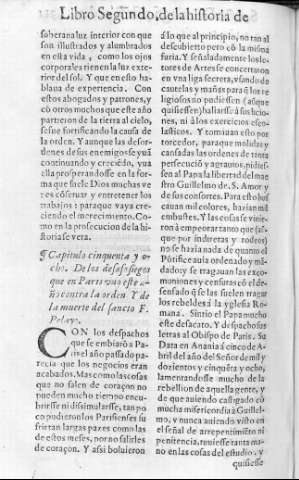 Libro Segundo, de la historia de
soberana luz interior con que
son illustrados y alumbrados
en esta vida, como los ojos
corporales tienen la luz exte-
rior del sol. Y que en esto ha-
blaua de experiencia. Con
estos abogados y patrones, y
cō otros muchos que este año
partieron de la tierra al cielo,
se fue fortificando la causa de
la orden. Y aunque las desor-
denes de sus enemigos se yuā
continuando y creciēdo, yua
ella prosperandosse en la for-
ma que suele Dios muchas ve
ces cōstruir y entretener los
trabajos: para que vaya cre-
ciendo el merecimiento. Co-
mo en la prosecucion de la hi-
storia se vera.
Capitulo cinquenta y o-
cho. De los desassosiegos
que en Paris vuo este a-
ño contra la orden. Y de
la muerte del sancto F.
Pelayo.
CON los despachos
que se embiarō a Pa-
ris el año passado pa-
recia que los negocios eran
acabados. Mas como las cosas
que no salen de coraçon no
pueden mucho tiempo encu-
brirse ni dissimularse, tan po
co pudieron los Parisienses su
frir tan largas pazes como las
de estos meses, por no salirles
de coraçon. Y assi boluieron
á lo que al principio, no tan al
descubierto pero cō la misma
furia. Y señaladamente los le-
ctores de Artes se concertaron
en vna liga secreta, vsando de
cautelas y mañas para q̄ los re
ligiosos no pudiessen (aũque
quisiessen) hallarse á sus licio-
nes, ni á los exercicios esco-
lasticos. Y tomauan esto por
torcedor, para que molidas y
cansadas las ordenes de tanta
persecució y agrauio, pidies-
sen al Papa la libertad del mae
stro Guillelmo de S. Amor y
de sus consortes. Para esto ha-
cian mil colores, hazian mil
embustes. Y las cosas se vinie-
rō á empeorar tanto que (así
que por indiretas y rodeos)
no se hazia nada de quanto el
Pōtifice auia ordenado y mā-
dado y se tragauan las exco-
muniones y censuras cō el des-
enfado q̄ se las suelen tragar
los rebeldes á la yglesia Ro-
mana. Sintio el Papa mucho
este desacato. Y despacho sus
letras al Obispo de Paris. Su
Data en Anania á cinco de A-
bril del año del Señor de mil y
dozientos y cinquēta y ocho,
lamentandosse mucho de la
rebellion de aquella gente, y
de que auiendo castigado cō
mucha misericordia á Guillel-
mo, y nunca auiendo visto en
el señal de arrepentimiēto ni
penitencia, tuuiesse tanta ma-
no en las cosas del estudio. y
quisiesse